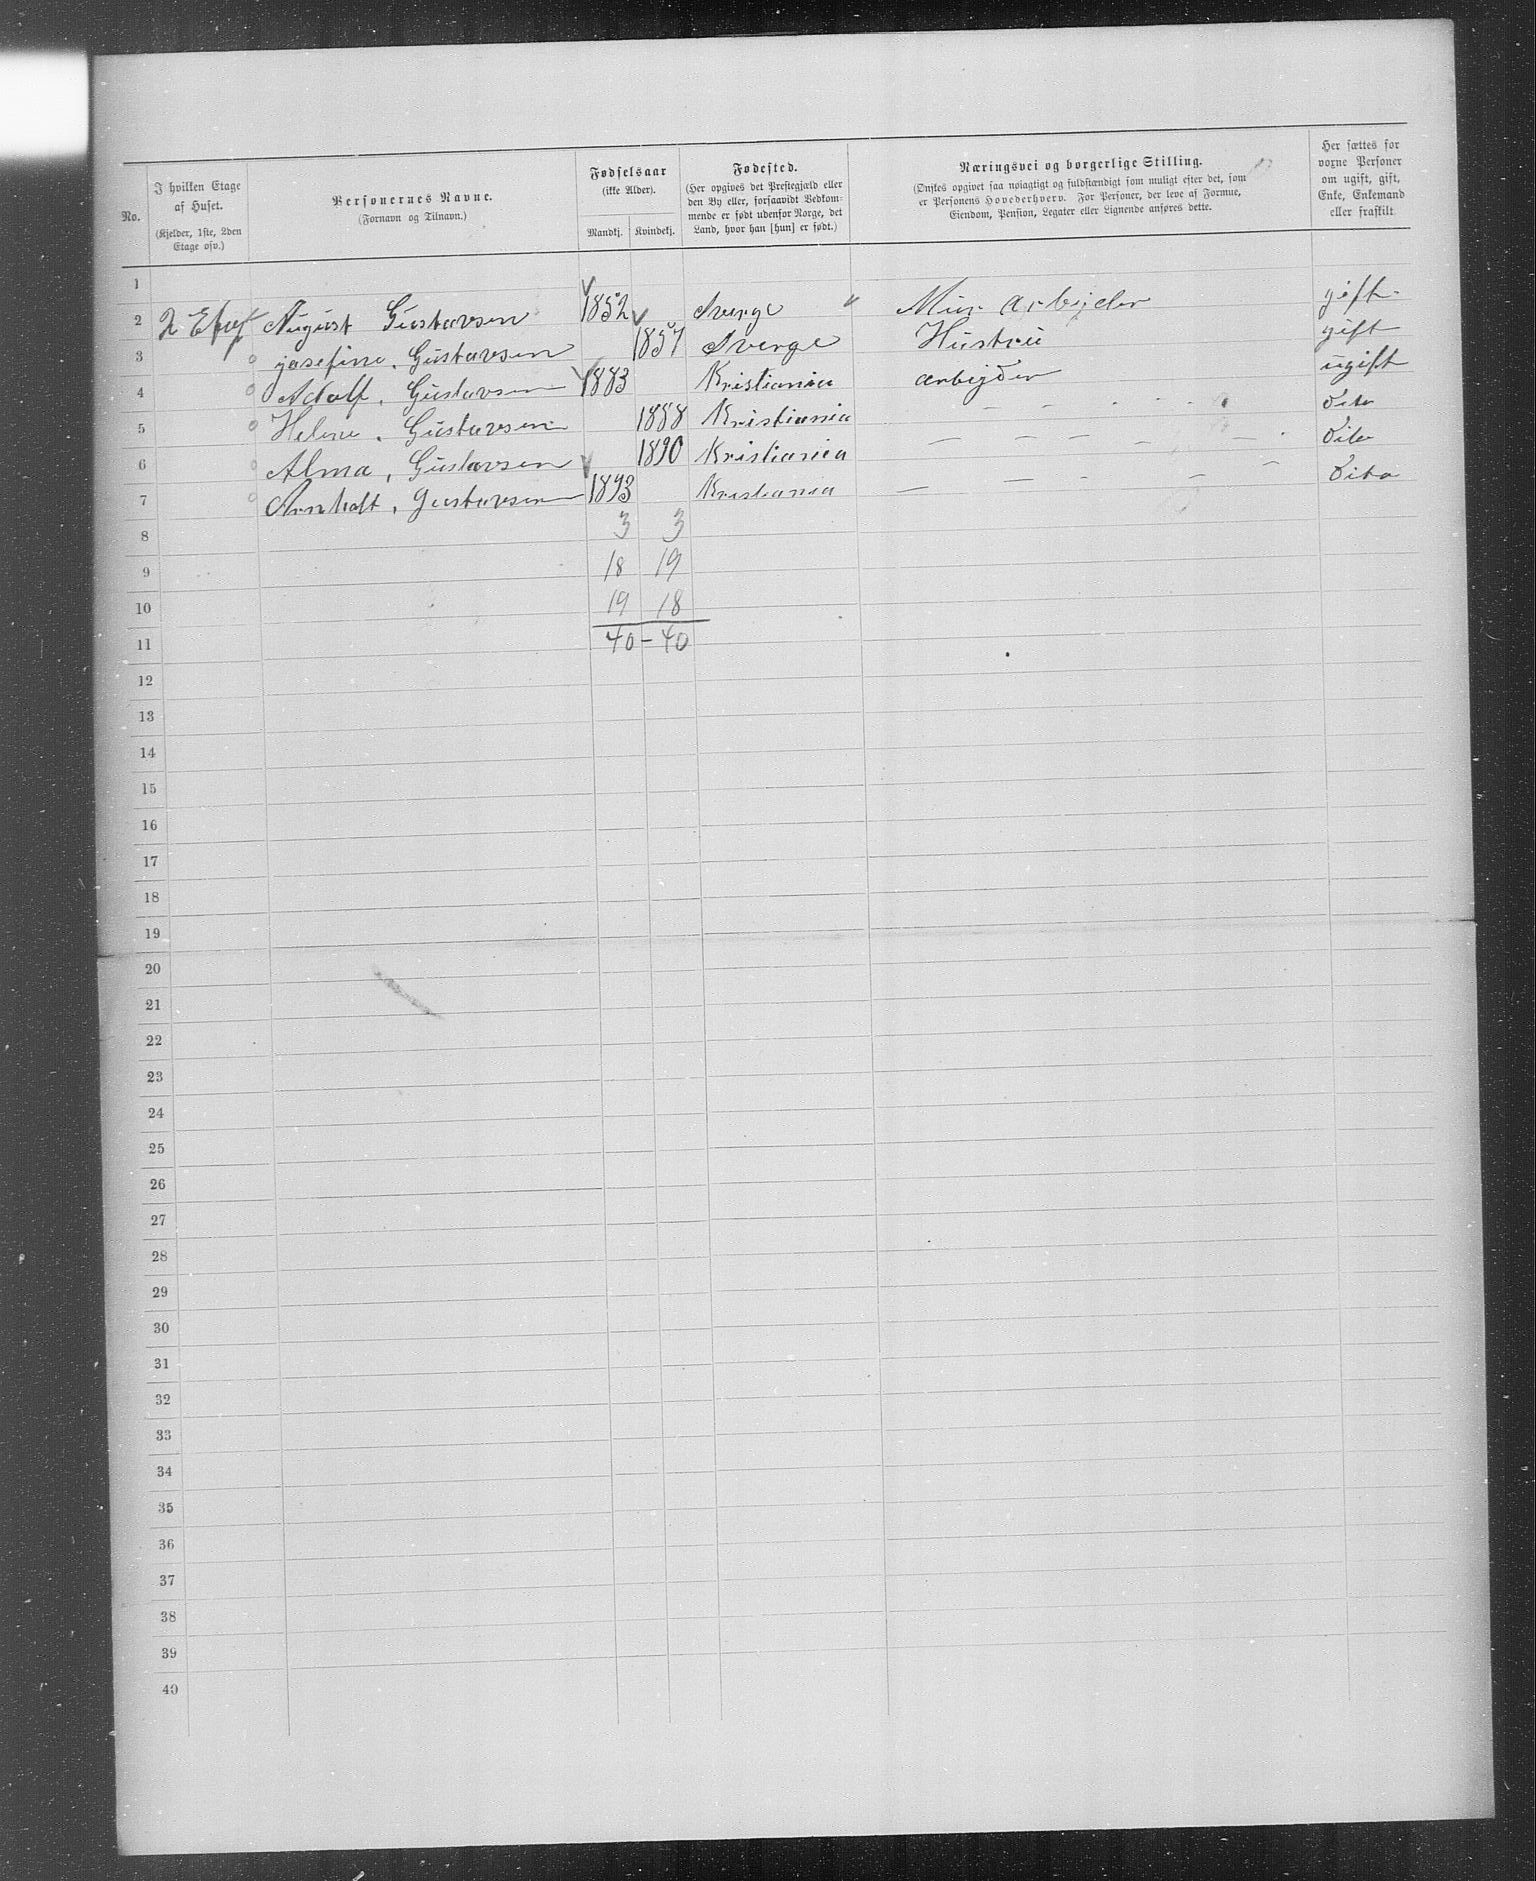 No.
I hvilken Etage af Huset.
(Kjelder, 1ste, 2den Etage osv.)
Personernes Navne.
(Fornavn og Tilnavn.)
Fødselsaar
(ikke Alder).
Mandkj. Kvindekj.
Fødested.
(Her opgives det Prestegjæld eller
den By eller, forsaavidt Vedkom-
mende er født udenfor Norge, det
Land, hvor han [hun] er født.)
Næringsvei og borgerlige Stilling.
(Ønskes opgivet saa nøiagtigt og fuldstændigt som muligt efter det, som
er Personens Hovederhverv. For Personer, der leve af Formue,
Eiendom, Pension, Legater eller Lignende anføres dette.
Her sættes for
voxne Personer
om ugift, gift,
Enke, Enkemand
eller fraskilt
1
2 August Gustavsen 1852 Sverge " Mur arbejder gift.
3 josefine. Gustavsen 1857 Sverge Hustru gift
4 Adolf. Gustavsen 1883 Kristiania arbejder ugift
5 Helene. Gustavsen 1888 Kristiania - - - - - dito
6 Alma. Gustavsen 1890 Kristiania - - - - - dito
7 Arnholt. Gustavsen 1893 Kristiania - - - - - dito
8 3 3
9 18 19
10 19 18
11 40 - 40
12
13
14
15
16
17
18
19
20
21
22
23
24
25
26
27
28
29
30
31
32
33
34
35
36
37
38
39
40